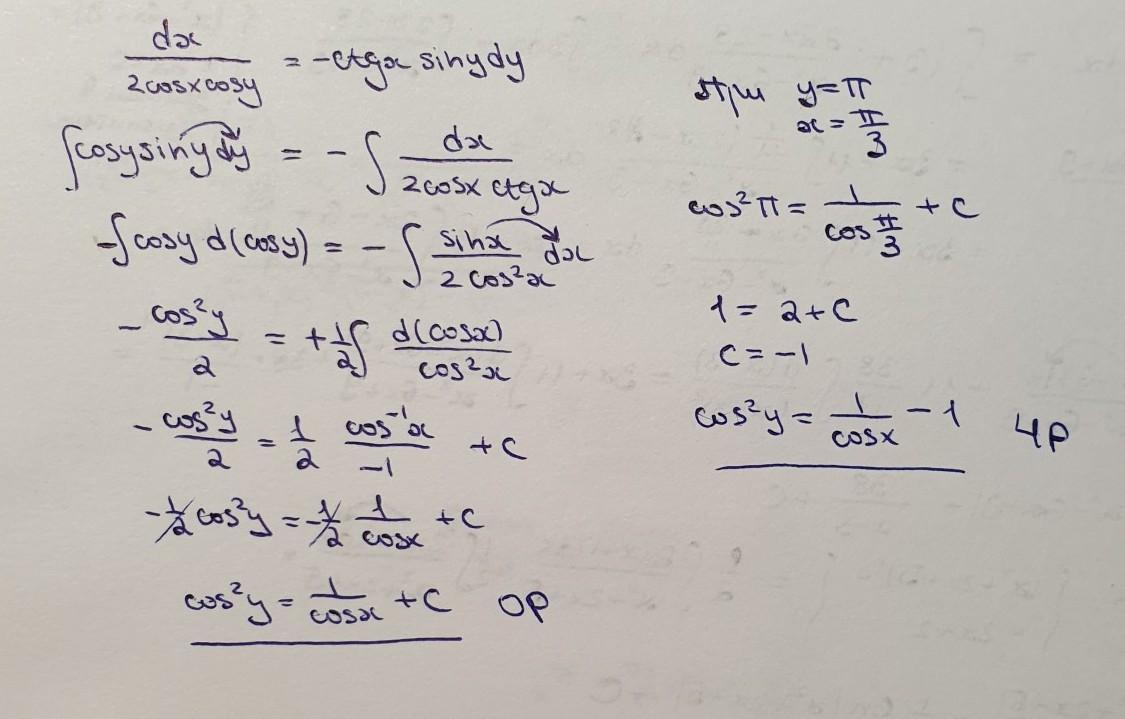 dx/(2cosxcosy) = -ctgx sinydy
∫cosysinydy = - ∫ dx/(2cosx ctgx)
-∫cosy d(cosy) = - ∫ sinx/(2cos²x) dx
- cos²y/2 = + 1/2 ∫ d(cosx)/cos²x
- cos²y/2 = 1/2 cos⁻¹x/-1 + C
-1/2 cos²y = -1/2 1/cosx + C
cos²y = 1/cosx + C ОР
при y=π
x=π/3
cos²π = 1/cos π/3 + C
1 = 2+C
C = -1
cos²y = 1/cosx - 1 ЧР